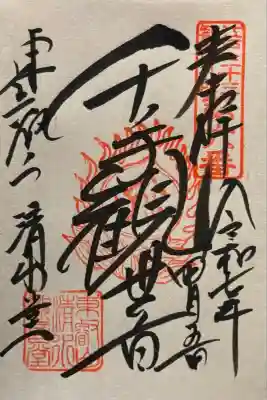 奉拝
令和七年
四月五日
千手観世音
東叡山 清水堂
東叡山清水観音堂